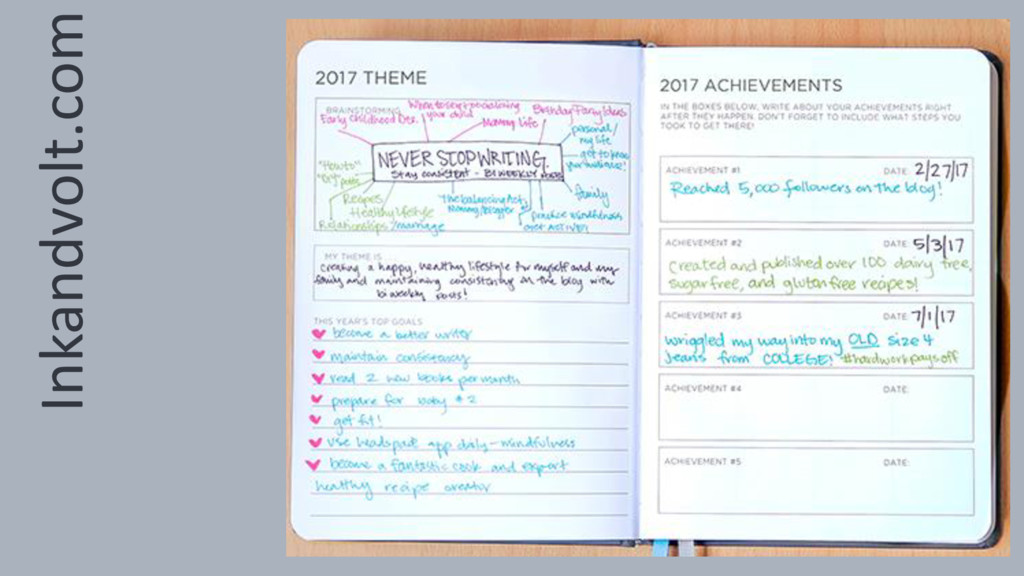 Inkandvolt.com
2017 THEME
BRAINSTORMING
When to say + your child
Early Childhood Dev.
Mommy Life
Birthday Party Ideas
personal/
my life
get to know
your audience!
NEVER STOP WRITING.
Stay consistent - BIWEEKLY posts
"How to"
"DIY" posts
family
Recipes
Healthy lifestyle
Relationships/marriage
The balancing Act,
Mommy/Blogger
practice mindfulness
GET ACTIVE!
MY THEME IS
creating a happy, healthy lifestyle for myself and my
family and maintaining consistency on the blog with
biweekly posts!
THIS YEAR'S TOP GOALS
become a better writer
maintain consistency
read 2 new books per month
prepare for baby #2
get fit!
use headspace app daily - mindfulness
become a fantastic cook and expert
healthy recipe creator
2017 ACHIEVEMENTS
IN THE BOXES BELOW, WRITE ABOUT YOUR ACHIEVEMENTS RIGHT
AFTER THEY HAPPEN. DON'T FORGET TO INCLUDE WHAT STEPS YOU
TOOK TO GET THERE!
ACHIEVEMENT #1 DATE: 2/27/17
Reached 5,000 followers on the blog!
ACHIEVEMENT #2 DATE: 5/3/17
Created and published over 100 dairy free,
sugar free, and gluten free recipes!
ACHIEVEMENT #3 DATE: 7/1/17
wriggled my way into my OLD size 4
jeans from COLLEGE! #hardworkpaysoff
ACHIEVEMENT #4 DATE:
ACHIEVEMENT #5 DATE: